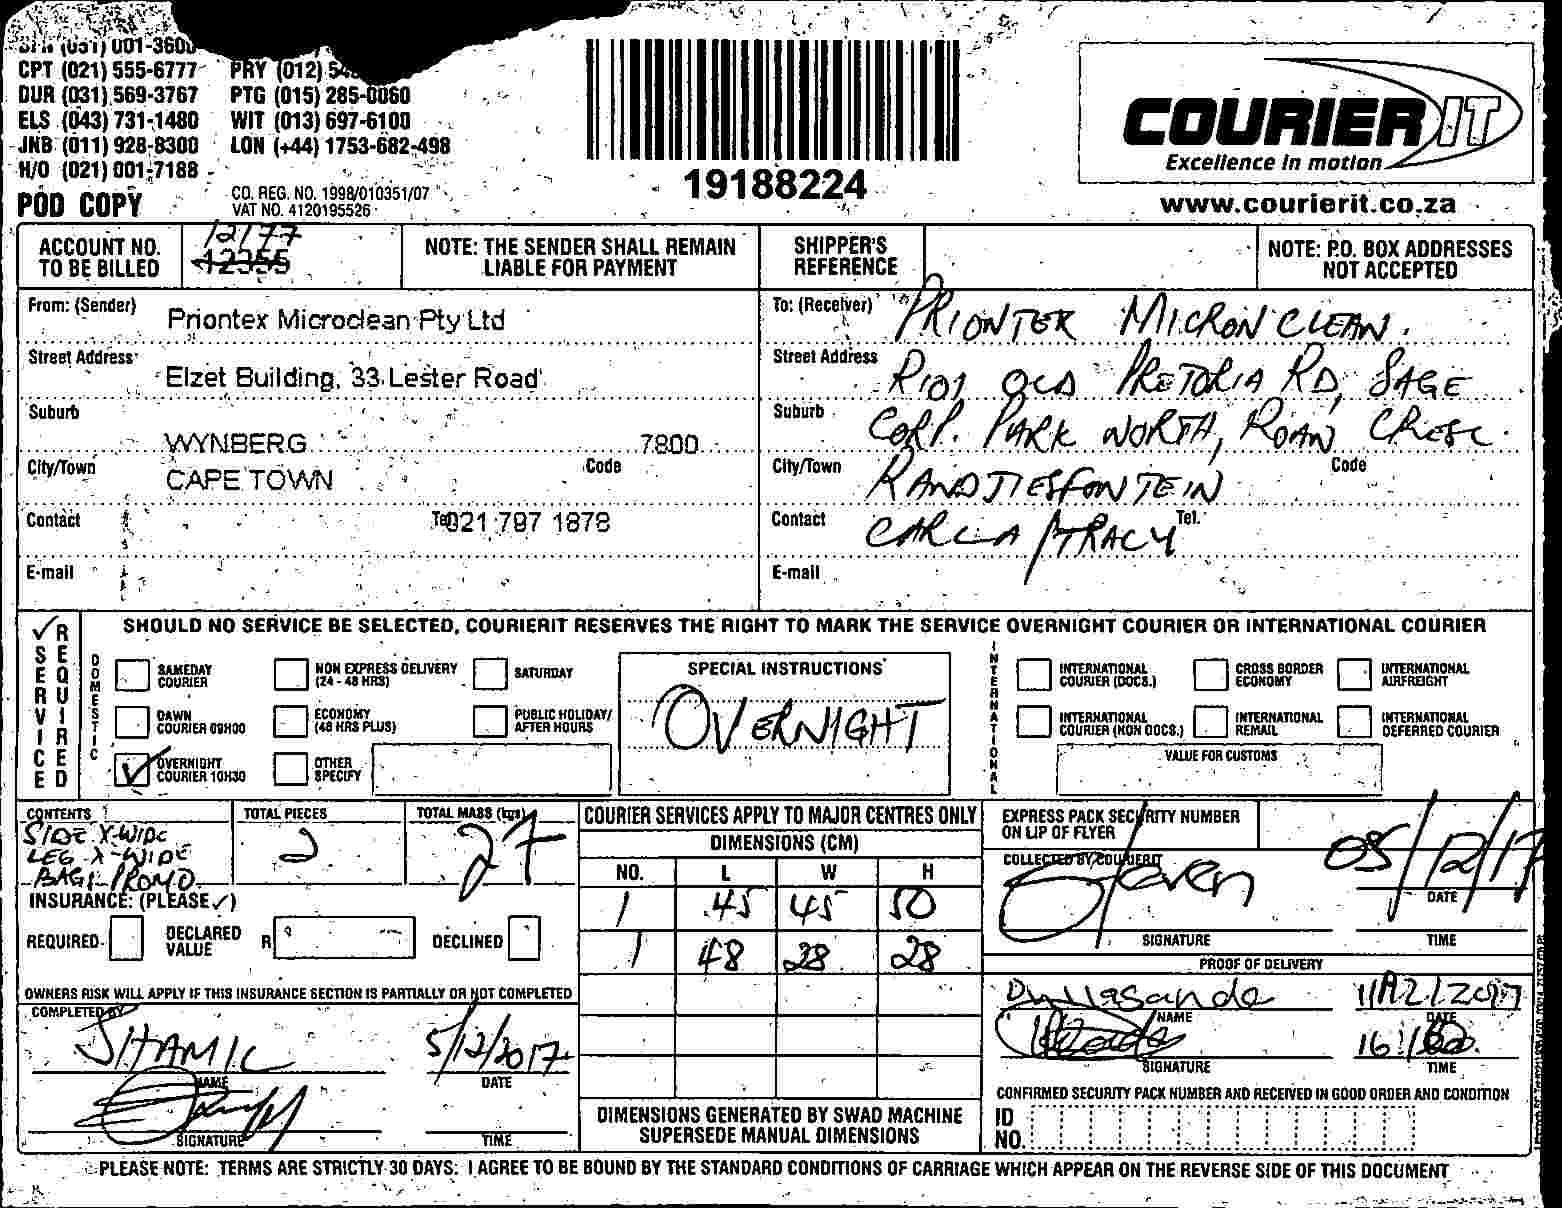 001-3600
CPT (021) 555-6777 PRY (012)
DUR (031) 569-3767 PTG (015) 285-0060
ELS (043) 731-1480 WIT (013) 697-6100
JNB (011) 928-8300 LON (+44) 1753-682-498
H/O (021) 001-7188
POD COPY
CO. REG. NO. 1998/010351/07
VAT NO. 4120195526
19188224
COURIER IT
Excellence in motion
www.courierit.co.za
ACCOUNT NO. TO BE BILLED
12177
12355
NOTE: THE SENDER SHALL REMAIN LIABLE FOR PAYMENT
SHIPPER'S REFERENCE
NOTE: P.O. BOX ADDRESSES NOT ACCEPTED
From: (Sender) Priontex Microclean Pty Ltd
Street Address Elzet Building, 33 Lester Road
Suburb WYNBERG 7800
City/Town CAPE TOWN Code
Contact Tel 021 797 1878
E-mail
To: (Receiver) PRIONTEX MICRON CLEAN.
Street Address R101 OLD PRETORIA RD, SAGE
Suburb CORP. PARK NORTH, ROAN CRESC.
City/Town RANDJIESFONTEIN Code
Contact CARLA/TRACY Tel.
E-mail
✓ SERVICE REQUIRED
SHOULD NO SERVICE BE SELECTED, COURIERIT RESERVES THE RIGHT TO MARK THE SERVICE OVERNIGHT COURIER OR INTERNATIONAL COURIER
DOMESTIC
SAMEDAY COURIER
NON EXPRESS DELIVERY (24 - 48 HRS)
SATURDAY
DAWN COURIER 09H00
ECONOMY (48 HRS PLUS)
PUBLIC HOLIDAY/ AFTER HOURS
✓ OVERNIGHT COURIER 10H30
OTHER SPECIFY
SPECIAL INSTRUCTIONS
OVERNIGHT
INTERNATIONAL
INTERNATIONAL COURIER (DOCS.)
CROSS BORDER ECONOMY
INTERNATIONAL AIRFREIGHT
INTERNATIONAL COURIER (NON DOCS.)
INTERNATIONAL REMAIL
INTERNATIONAL DEFERRED COURIER
VALUE FOR CUSTOMS
CONTENTS
SIDE X-WIDE
LEG X-WIDE
BAG PROMO
TOTAL PIECES
2
TOTAL MASS (kgs)
27
INSURANCE: (PLEASE ✓)
REQUIRED DECLARED VALUE R DECLINED
OWNERS RISK WILL APPLY IF THIS INSURANCE SECTION IS PARTIALLY OR NOT COMPLETED
COMPLETED BY
SHAMIL 5/12/2017
NAME DATE
SIGNATURE TIME
COURIER SERVICES APPLY TO MAJOR CENTRES ONLY
DIMENSIONS (CM)
NO. L W H
1 45 45 50
1 48 28 28
DIMENSIONS GENERATED BY SWAD MACHINE SUPERSEDE MANUAL DIMENSIONS
EXPRESS PACK SECURITY NUMBER ON LIP OF FLYER
COLLECTED BY COURIERIT
Steven 05/12/17
DATE
SIGNATURE TIME
PROOF OF DELIVERY
NAME DATE
SIGNATURE TIME
CONFIRMED SECURITY PACK NUMBER AND RECEIVED IN GOOD ORDER AND CONDITION
ID NO.
PLEASE NOTE: TERMS ARE STRICTLY 30 DAYS. I AGREE TO BE BOUND BY THE STANDARD CONDITIONS OF CARRIAGE WHICH APPEAR ON THE REVERSE SIDE OF THIS DOCUMENT